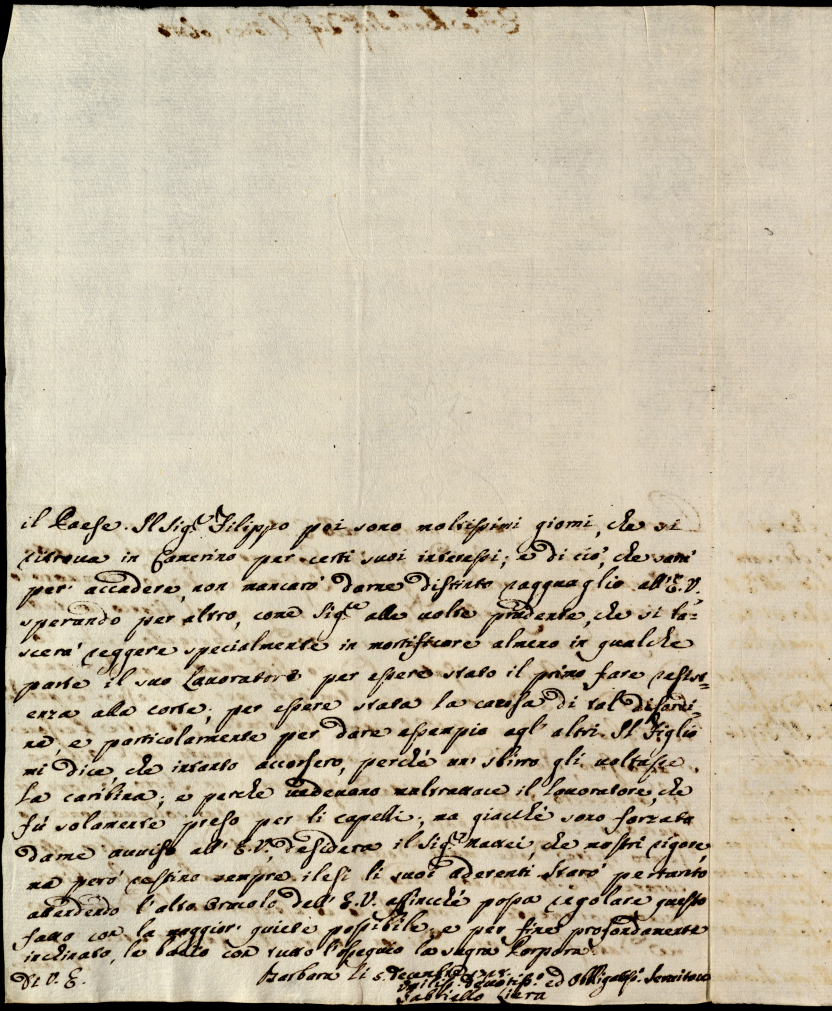 il Paese. Il Sig.r Filippo poi sono moltissimi giorni, che si
ritrova in Camerino per certi suoi interessi; e di ciò, che sarà
per accadere, non mancarò darne distinto ragguaglio all'E.V.
sperando per altro, come Sig.re alle volte prudente, che si la=
scerà reggere specialmente in mortificare almeno in qualche
parte il suo Lavoratore per essere stato il primo fare resist=
enza alla corte; per essere stata la causa di tal disordi=
ne, e particolarmente per dare essempio agl'altri. Il Figlio
mi dice, che intanto accorsero, perché un sbirro gli voltasse
la carabina; e perche vedevano maltrattare il Lavoratore, che
fù solamente preso per li capelli; ma giacché sono forzata
darne avviso all'E.V., desidera il Sig.r che mostri rigore,
ma però restino sempre ilesi li suoi aderenti. Starò pertanto
attendendo l'alto Oracolo dell'E.V. affinché possa regolare questo
fatto con la maggior quiete possibile; e per fine profondamente
inchinato, le bacio con tutto l'ossequio la sagra Porpora.
Di V. E. Barbara li 5. Decembre
Umiliss.o Devotiss.o ed Obbligatiss.o Servitore
Gabriello